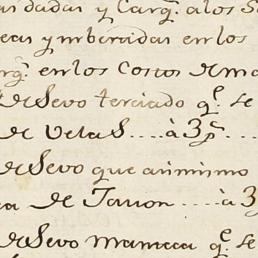 dadas y Carg.^s a los S
y imbertidas en los
en los Costos de ma
de Sevo terciado q.^e se
de Velas.... à 3 p.^s....
de Sevo que asimismo
de Javon..... à 3
de Sevo Manteca q.^e se